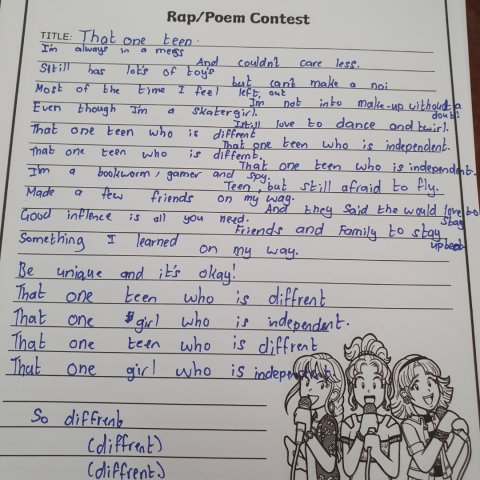 Rap/Poem Contest
TITLE: That one teen.
I'm always in a mess
And couldn't care less.
Still has lot's of toy's
but can't make a noi
Most of the time I feel left out
Im not into make-up without a doubt
Even though I'm a skatergirl.
I still love to dance and twirl.
That one teen who is diffrent
That one teen who is independent.
That one teen who is differnt.
That one teen who is independent.
I'm a bookworm, gamer and spy.
Teen, but still afraid to fly.
Made a few friends on my way.
And they said the would love to stay
Good inflence is all you need.
Friends and Family to stay upbeat
Something I learned on my way.
Be unique and it's okay!
That one teen who is diffrent
That one girl who is independent.
That one teen who is diffrent
That one girl who is independent.
So diffrent
(diffrent)
(diffrent.)